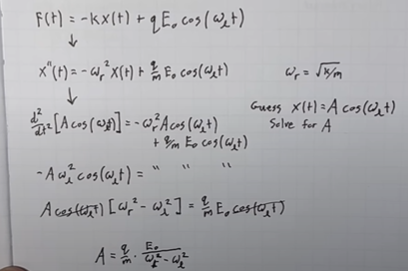 F(t) = -kx(t) + qE₀cos(ω_ℓt)
↓
x''(t) = -ω_r²x(t) + q/m E₀cos(ω_ℓt)
ω_r = √(k/m)
↓
d²/dt² [A cos(ω_ℓt)] = -ω_r²A cos(ω_ℓt)
+ q/m E₀cos(ω_ℓt)
Guess x(t) = A cos(ω_ℓt)
Solve for A
-Aω_ℓ²cos(ω_ℓt) = " " "
A cos(ω_ℓt) [ω_r² - ω_ℓ²] = q/m E₀cos(ω_ℓt)
A = q/m · E₀/(ω_r² - ω_ℓ²)